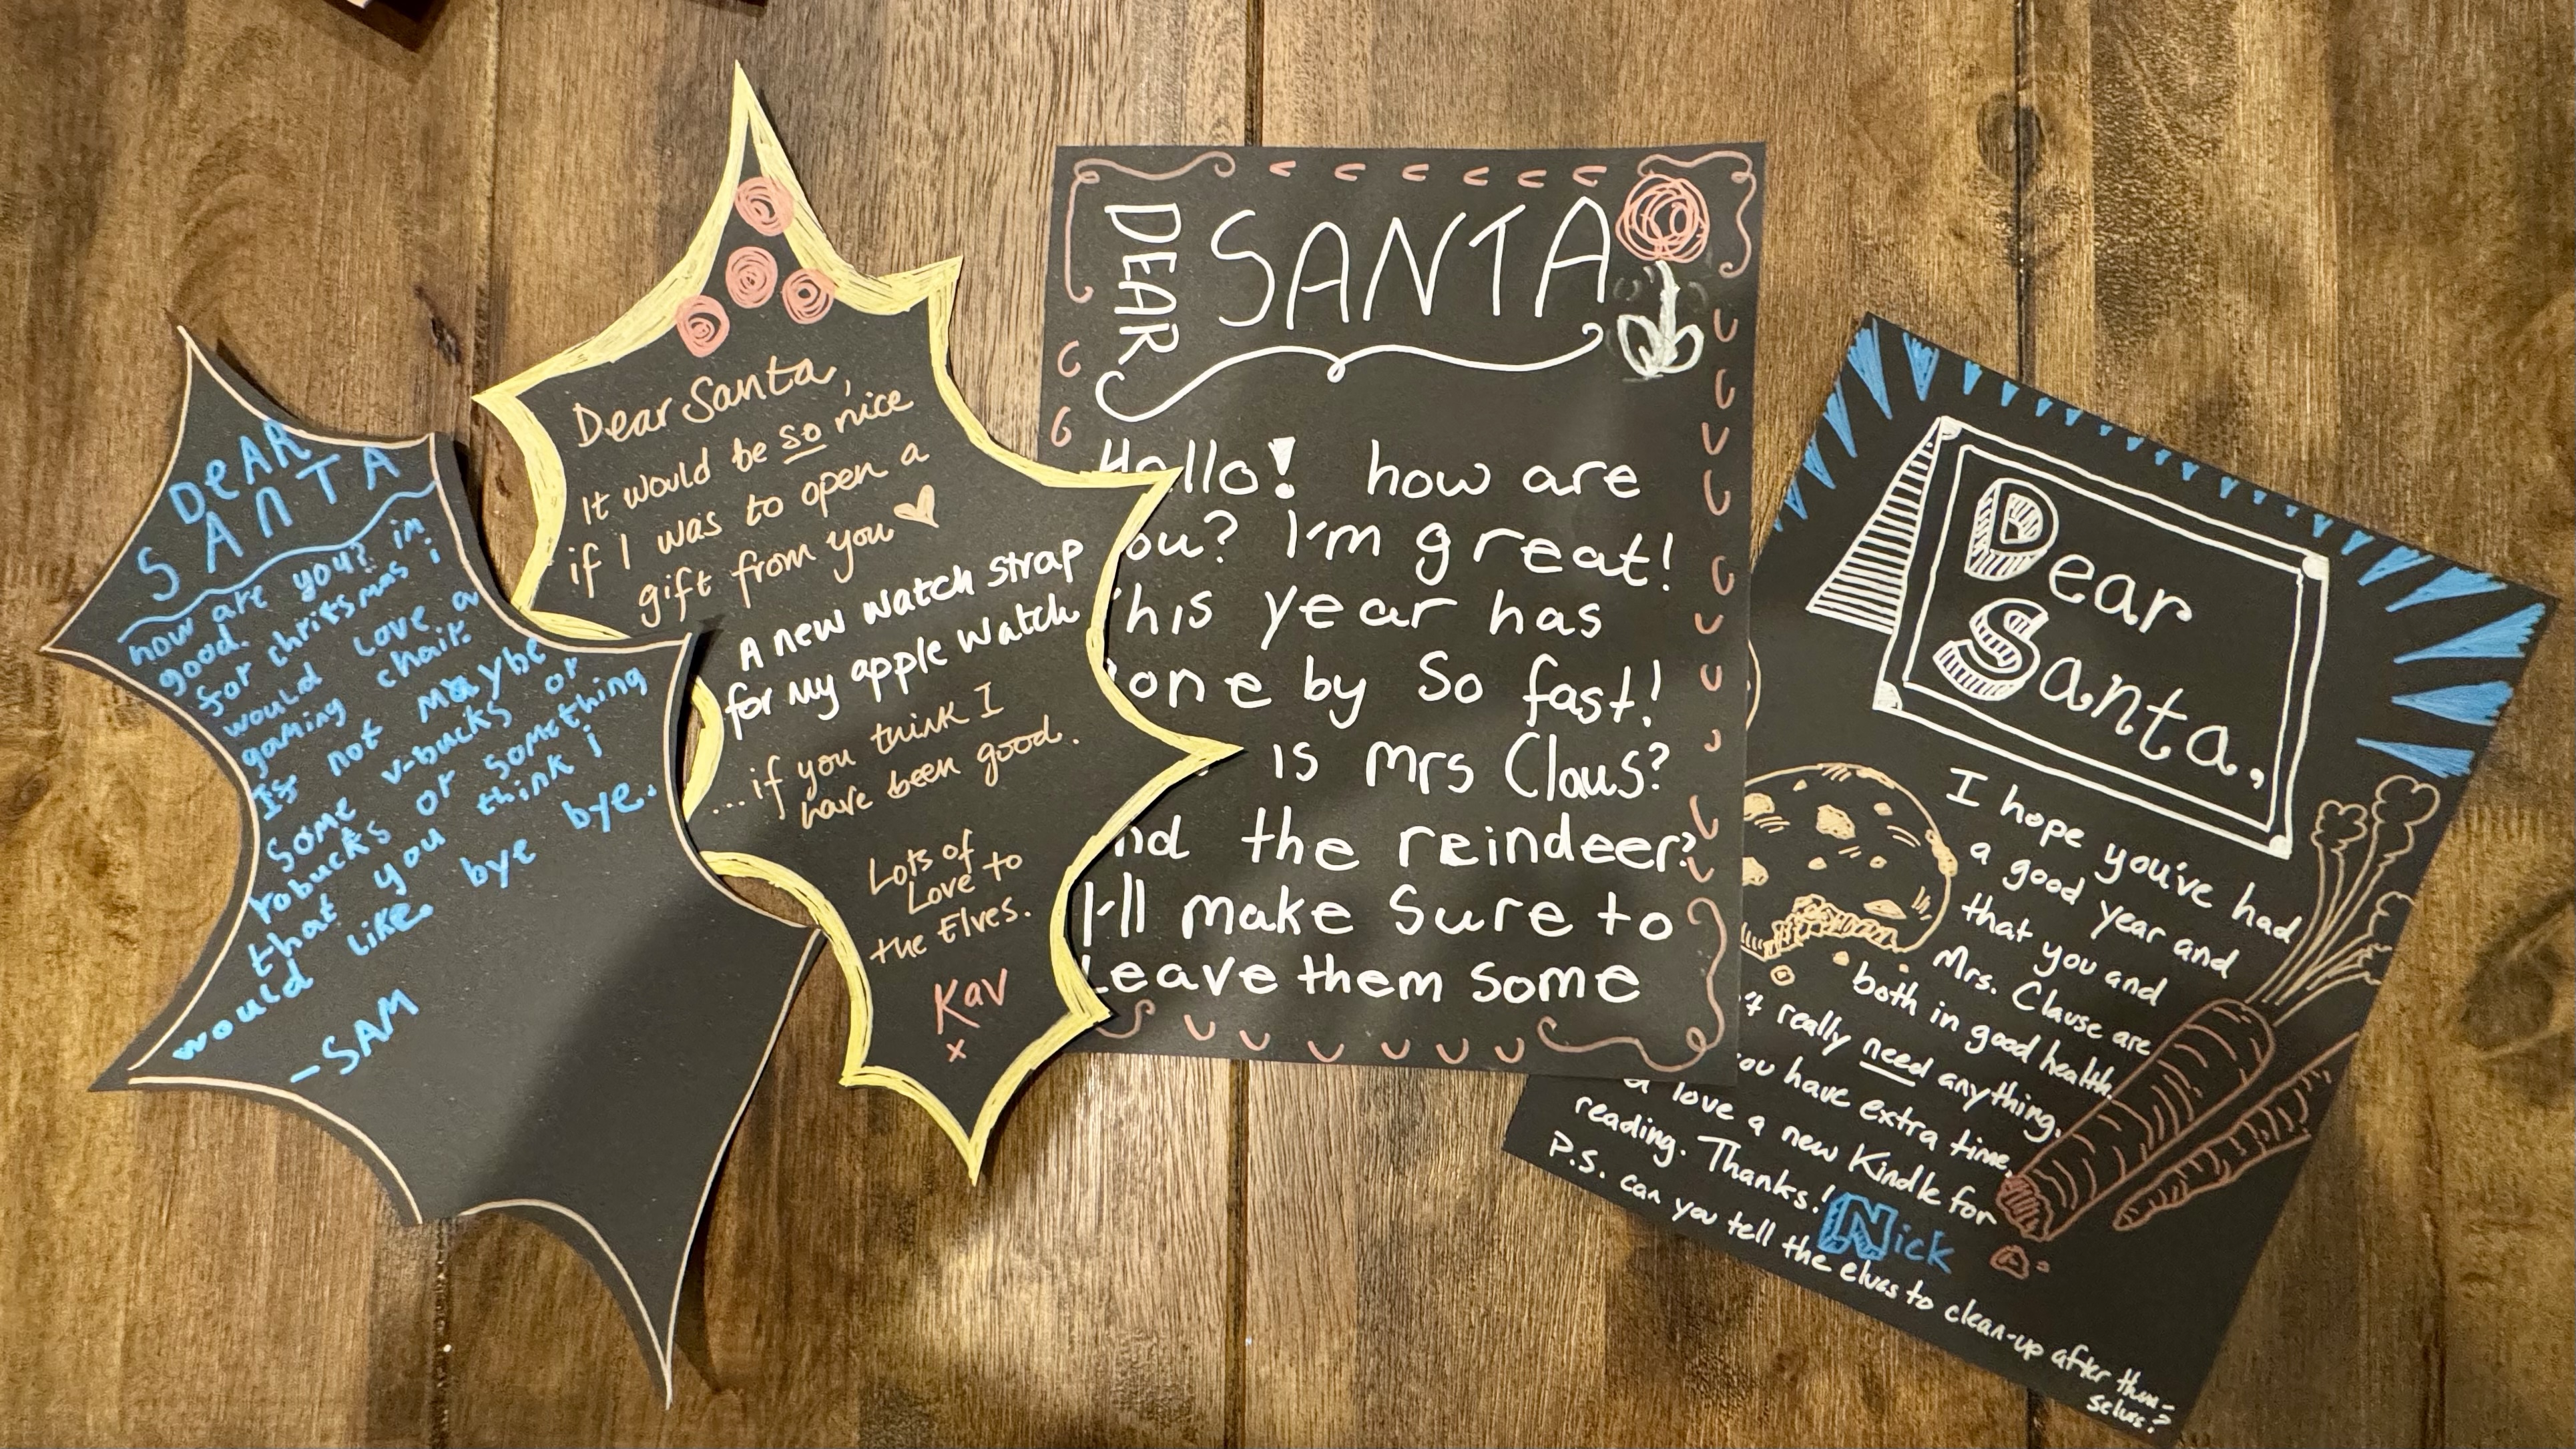 DeAR
SANTA
how are you? im
good.
for chritsmas i
would love a
gaming chair.
If not maybe
some v-bucks or
robucks or something
that you think i
would like. bye bye.
-SAM
Dear Santa,
It would be so nice
if I was to open a
gift from you
A new watch strap
for my apple watch
....if you think I
have been good.
Lots of
Love to
the Elves.
Kav
x
DEAR SANTA
Hello! how are
you? I'm great!
This year has
gone by So fast!
is Mrs Claus?
And the reindeer?
I'll make sure to
Leave them some
Dear
Santa,
I hope you've had
a good year and
that you and
Mrs. Clause are
both in good health.
really need anything.
you have extra time,
love a new Kindle for
reading. Thanks!
Nick
P.S. can you tell the elves to clean-up after them-
selves?